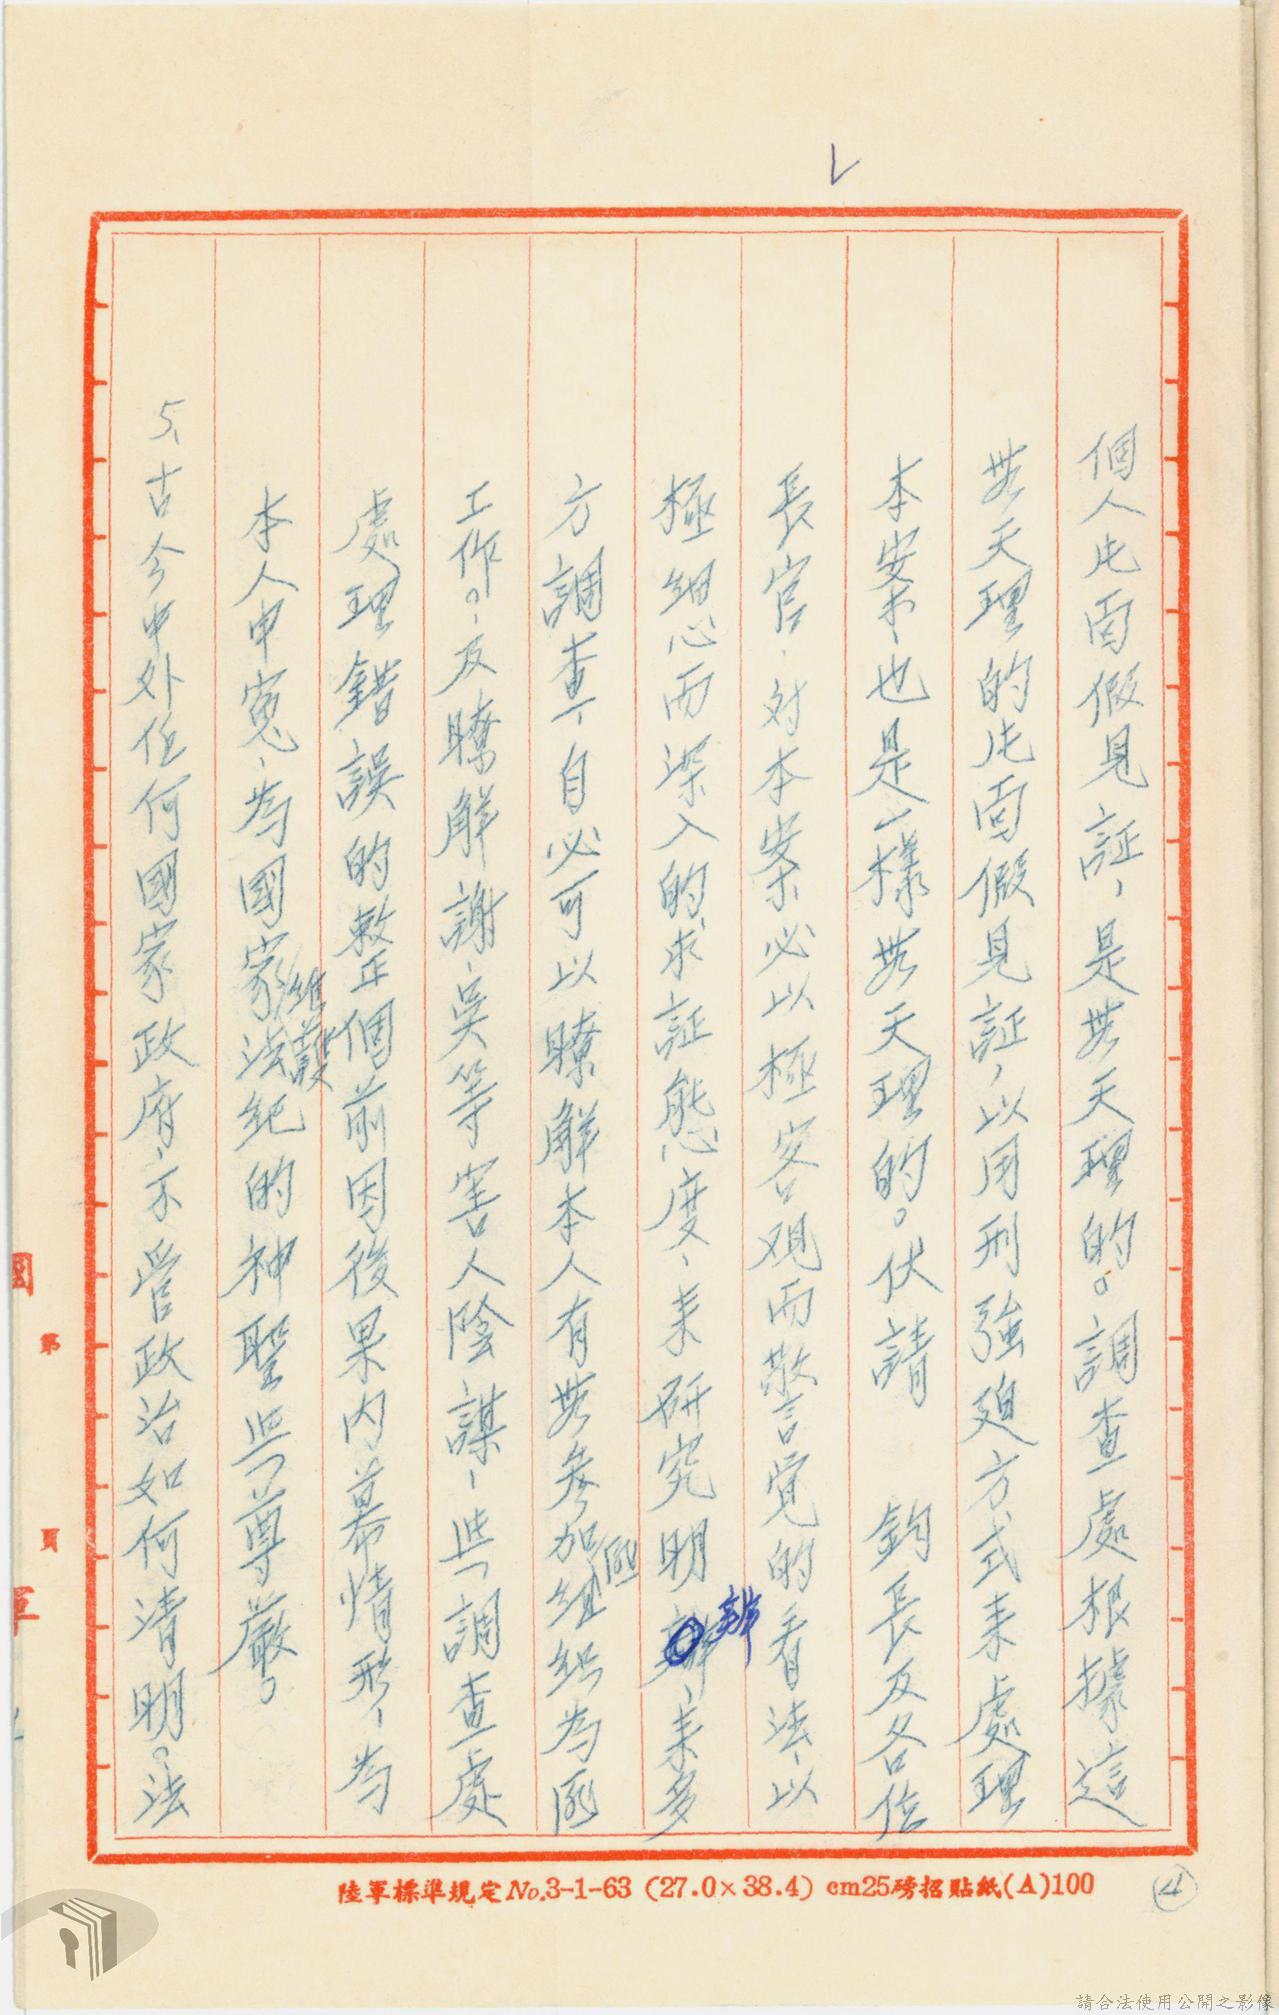 個人片面假見証,是無天理的。調查處根據這
無天理的片面假見証,以用刑強廹方式来處理
本案、也是一樣無天理的。伏請 鈞長及各位
長官、対本案必以極客观而警覚的看法、以
極細心而深入的求証態度、来研究明辨、来多
方調查、自必可以瞭解本人有無參加匪組織為匪
工作。、及瞭解謝、吳等害人陰謀、与調查處
處理錯誤的整個前因後果內幕情形、為
本人申寃、為國家維護法紀的神聖与尊嚴。
5、古今中外任何國家政府、不管政治如何清明。法
陸軍標準規定No.3-1-63(27.0×38.4)cm25磅招貼紙(A)100
4
第 頁
國
軍
請合法使用公開之影像